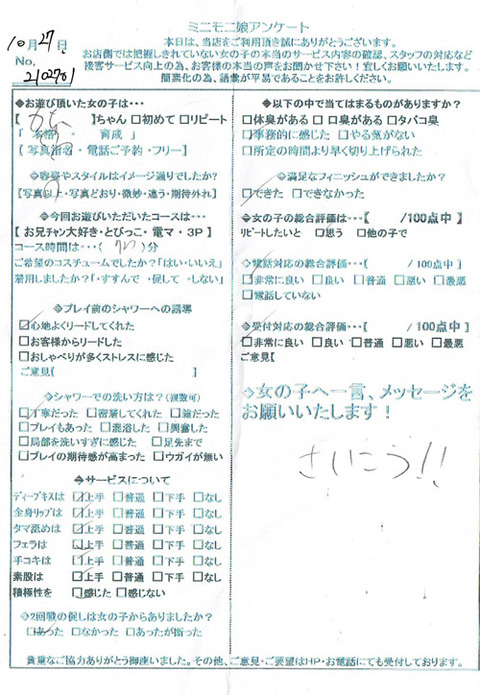 ミニモニ娘アンケート
10月27日
No,
2102701
本日は、当店をご利用頂き誠にありがとうございます。
お店側では把握しきれていない女の子の本当のサービス内容の確認、スタッフの対応など
接客サービス向上の為、お客様の本当の声をお聞かせ下さい！宜しくお願いいたします。
簡素化の為、語彙が平易であることをお許しください。
◆お遊び頂いた女の子は…
【 】ちゃん □初めて □リピート
「 本格 ・ 育成 」
（ 写真指名 ・ 電話ご予約 ・ フリー】
◇容姿やスタイルはイメージ通りでしたか？
【写真以上・写真どおり・微妙・違う・期待外れ】
◇今回お遊びいただいたコースは…
【 お兄チャン大好き・とびっこ・電マ・３Ｐ】
コース時間は…（ 70 ）分
ご希望のコスチュームでしたか？「はい・いいえ」
着用しましたか？「・すすんで ・促して ・しない」
◆プレイ前のシャワーへの誘導
☑心地よくリードしてくれた
□お客様からリードした
□おしゃべりが多くストレスに感じた
ご意見【 】
◇シャワーでの洗い方は？（複数可）
□丁寧だった □密着してくれた □雑だった
□プレイもあった □混浴した □興奮した
□局部を洗いすぎに感じた □足先まで
□プレイの期待感が高まった □ウガイが無い
◇サービスについて
ディープキスは ☑上手 □普通 □下手 □なし
全身リップは ☑上手 □普通 □下手 □なし
タマ舐めは ☑上手 □普通 □下手 □なし
フェラは ☑上手 □普通 □下手 □なし
手コキは ☑上手 □普通 □下手 □なし
素股は ☑上手 □普通 □下手 □なし
積極性を ☑感じた □感じない
◇2回戦の促しは女の子からありましたか？
□あった □なかった □あったが断った
◆以下の中で当てはまるものがありますか？
□体臭がある □ 口臭がある □タバコ臭
□事務的に感じた □やる気がない
□所定の時間より早く切り上げられた
◇満足なフィニッシュができましたか？
□できた □できなかった
◆女の子の総合評価は…【 /100点中 】
リピートしたいと □思う □他の子で
◇電話対応の総合評価…【 /100点中】
□非常に良い □良い □普通 □悪い □最悪
□電話していない
◇受付対応の総合評価…【 /100点中】
□非常に良い □良い □普通 □悪い □最悪
ご意見【 】
◇女の子へ一言、メッセージを
お願いいたします！
さいこう!!
貴重なご協力ありがとう御座いました。その他、ご意見・ご要望はHP・お電話にても受付しております。